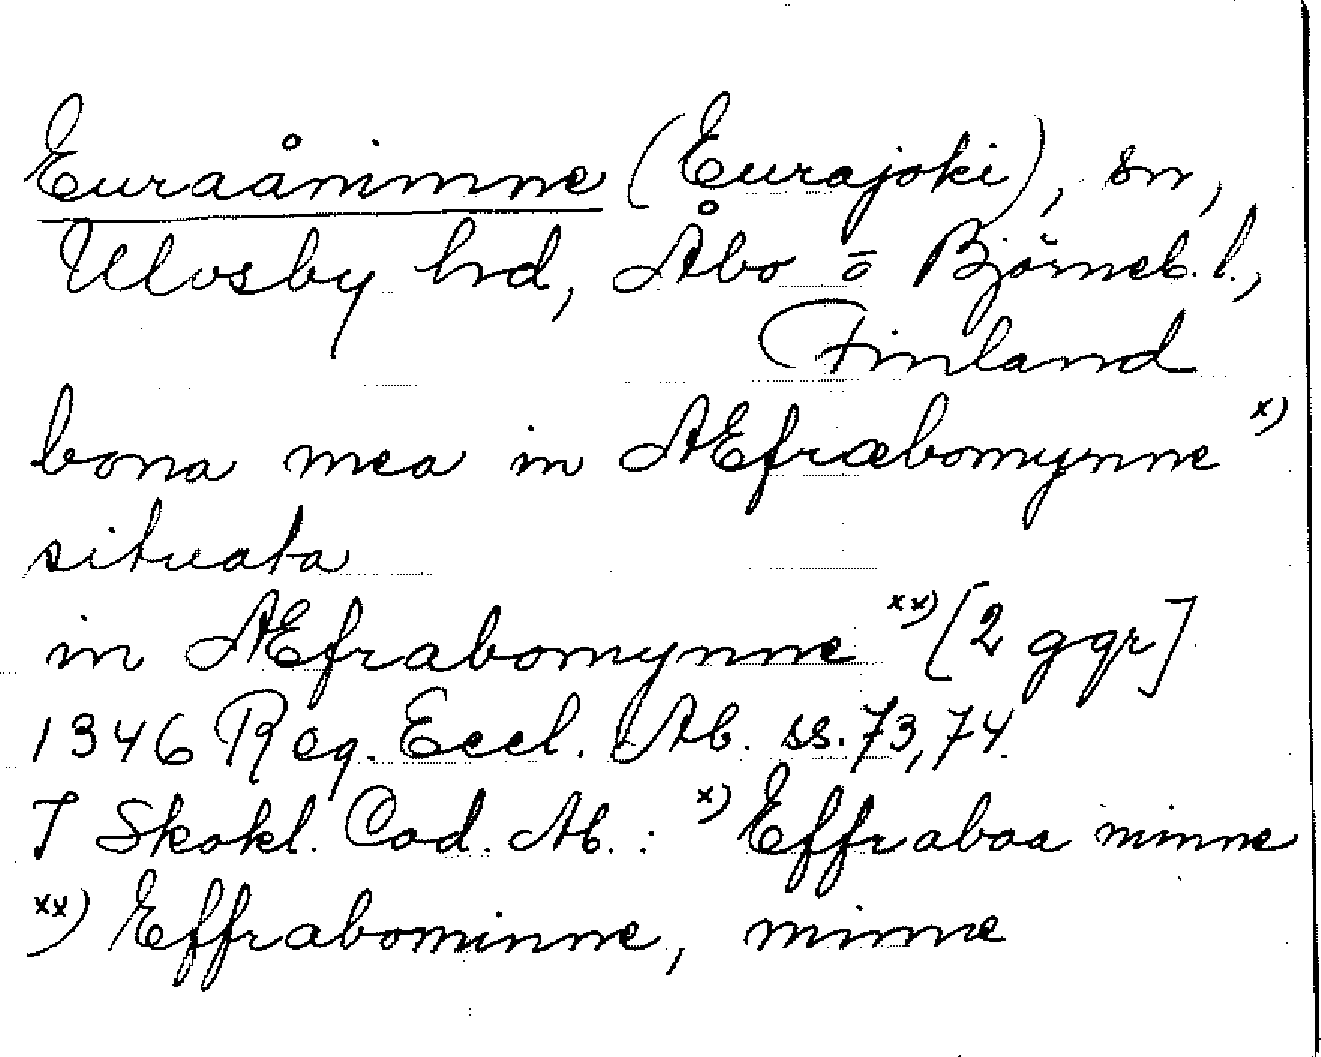 Euraåminne (Eurajoki), sn,
Ulvsby hd, Åbo o Björneb. l.,
Finland
bona mea in Æfræbomynne x)
situata
in Æfrabomynne xx) [2 ggr]
1346 Reg. Eccl. Ab. ss. 73, 74.
I Skokl. Cod. Ab.: x) Effraboa minne
xx) Effrabominne, minne